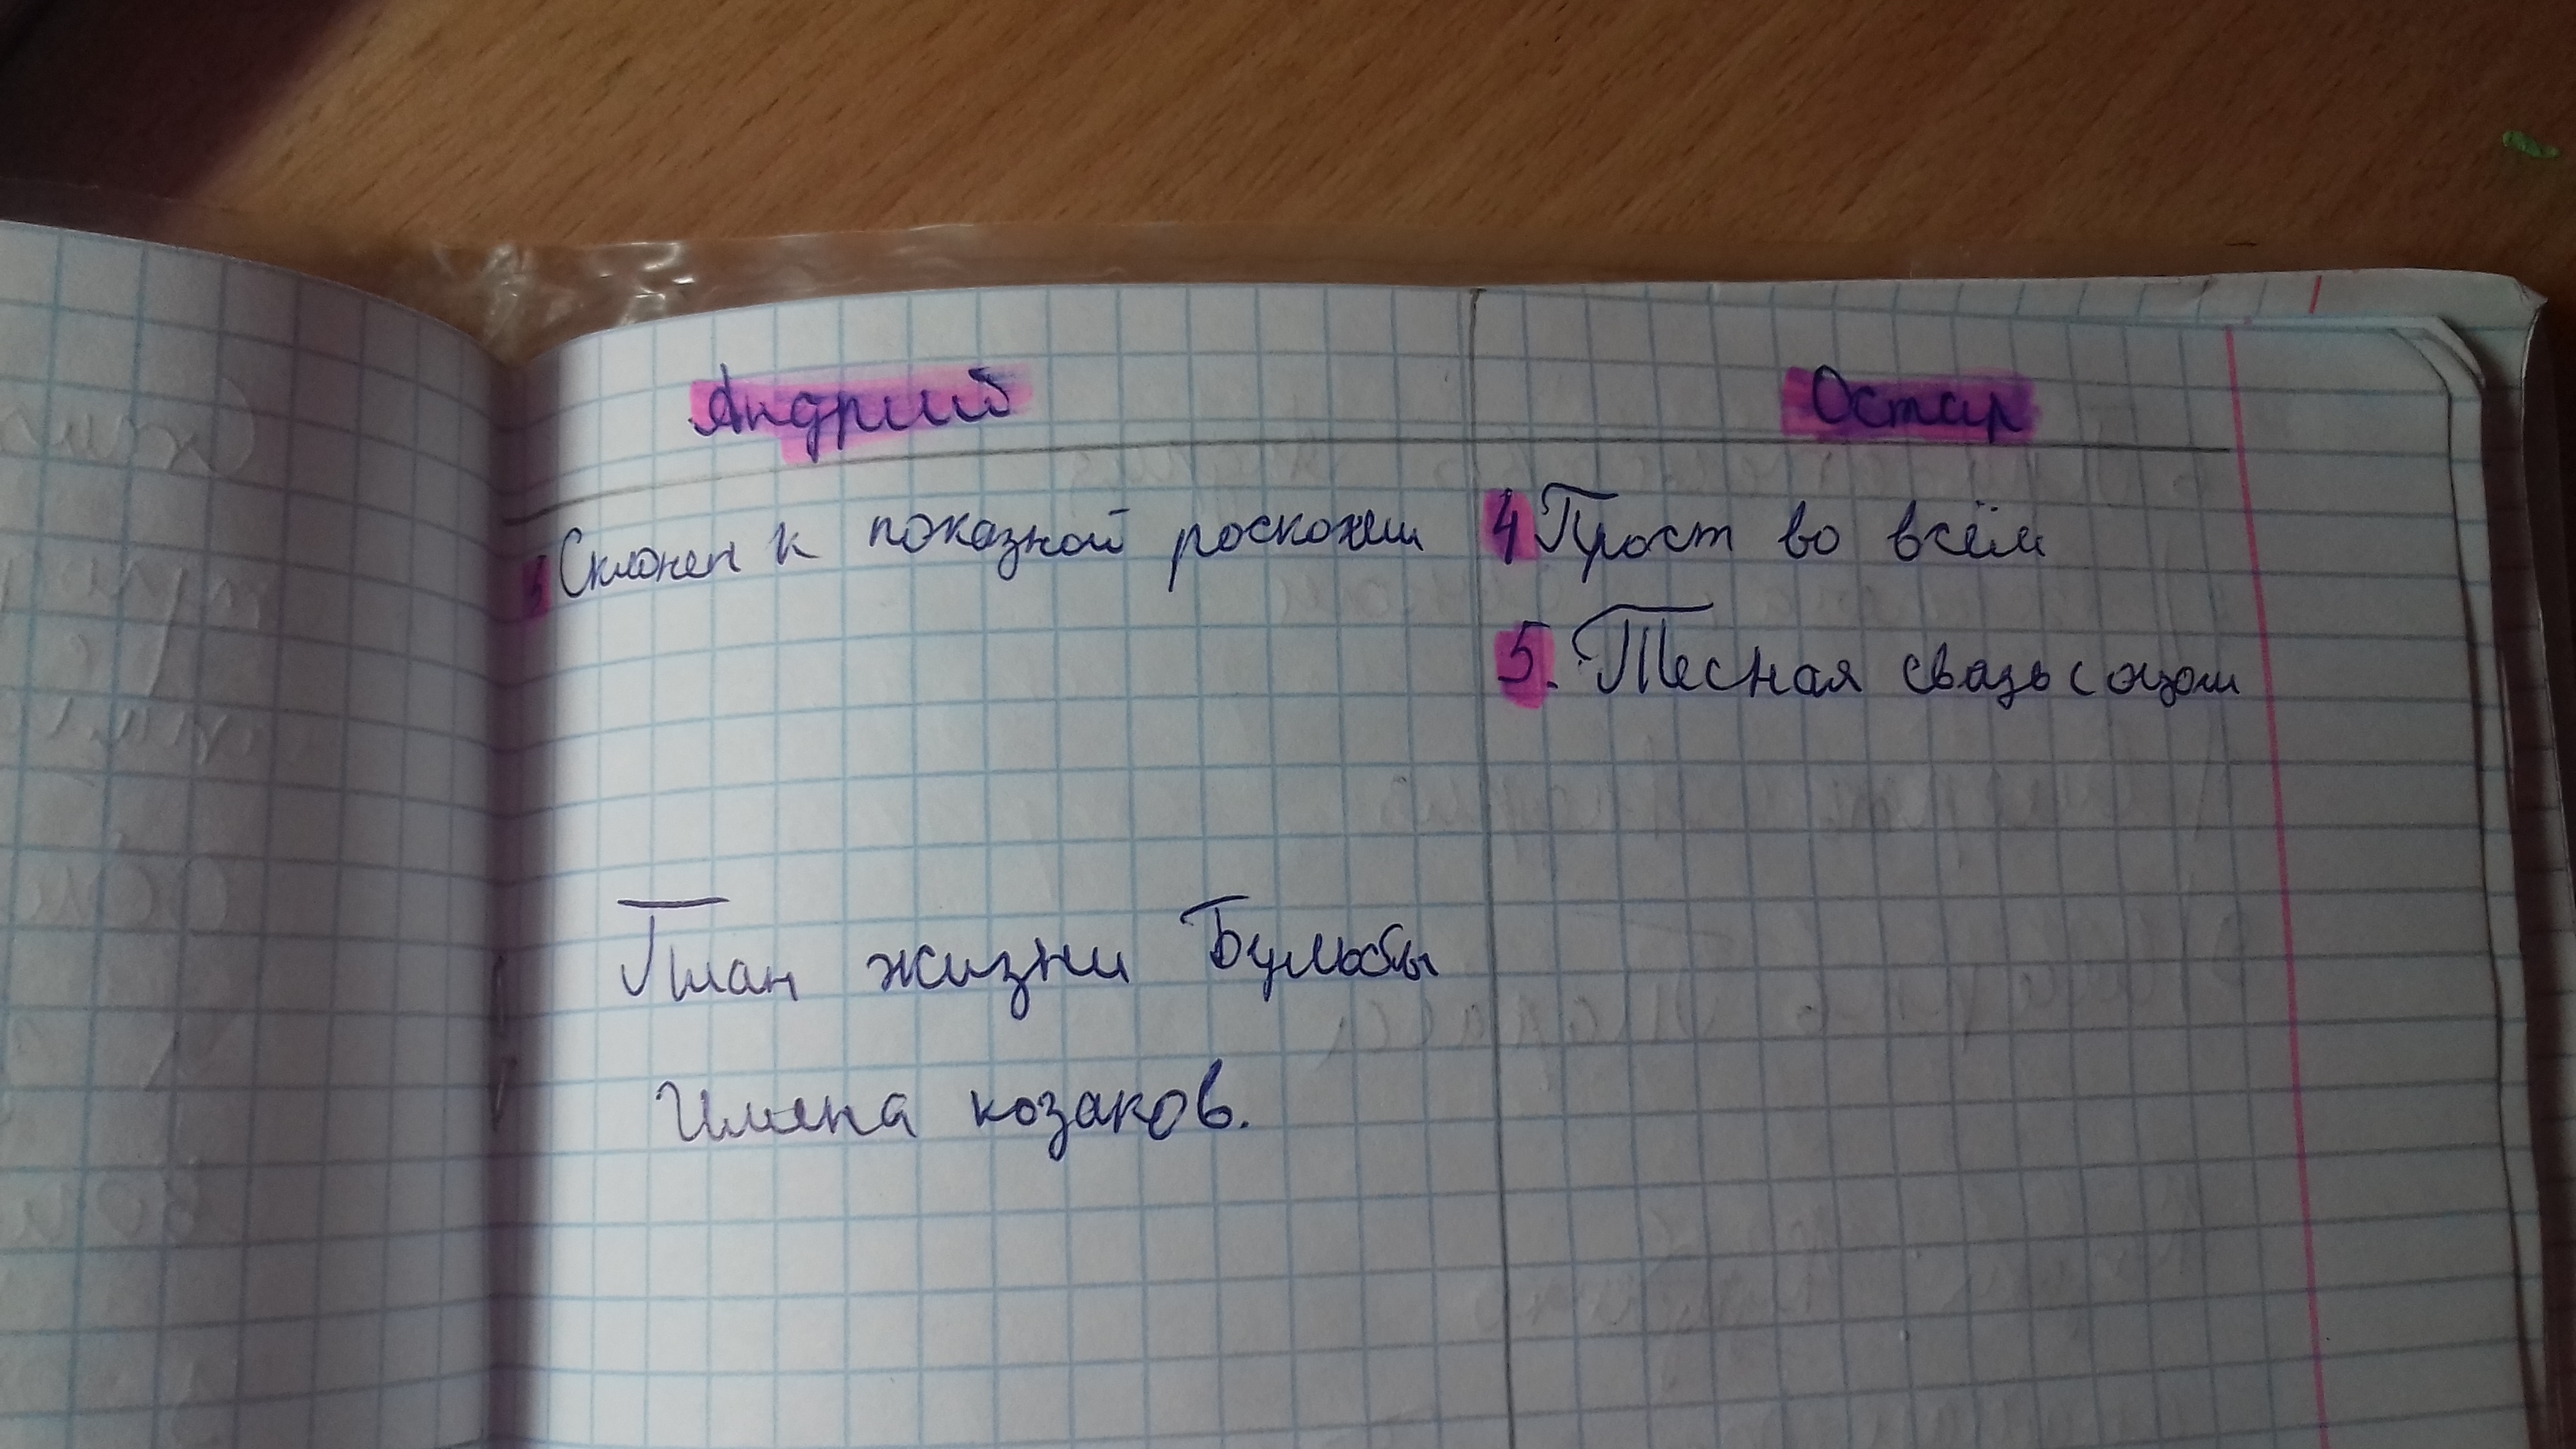 Андрий Остап
Склонен к показной роскоши 4 Прост во всём
5. Тесная связь с отцом
План жизни Бульбы
Имена козаков.